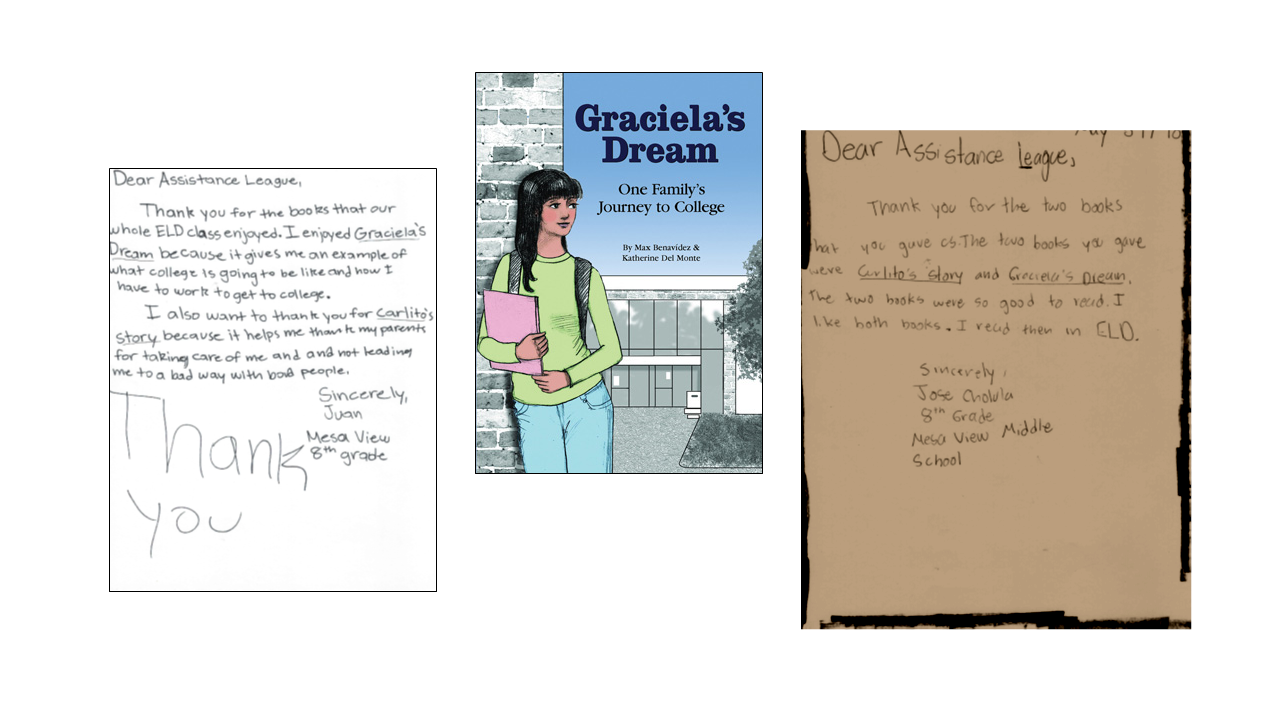 Dear Assistance League,
Thank you for the books that our
whole ELD class enjoyed. I enjoyed Graciela's
Dream because it gives me an example of
what college is going to be like and how I
have to work to get to college.
I also want to thank you for Carlito's
story because it helps me thank my parents
for taking care of me and and not leading
me to a bad way with bad people.
Sincerely,
Juan
Mesa View
8th grade
Thank
you
Graciela's
Dream
One Family's
Journey to College
By Max Benavídez &
Katherine Del Monte
Dear Assistance league,
Thank you for the two books
hat you gave us. The two books you gave
were Carlito's story and Graciela's Dream.
The two books were so good to read. I
like both books. I read then in ELD.
Sincerely,
Jose Cholula
8th Grade
Mesa View Middle
School